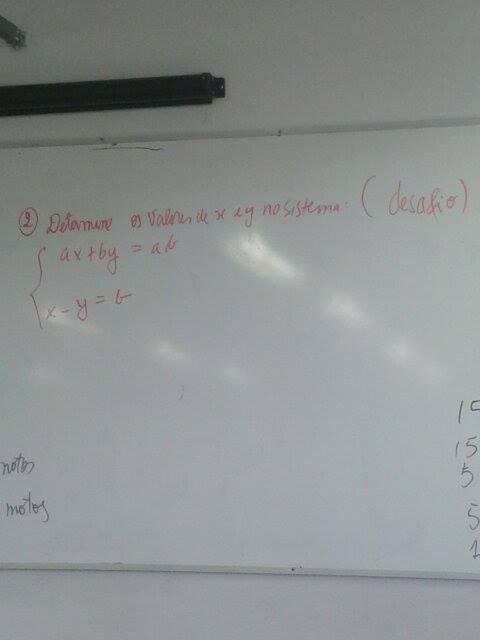 ② Determine os valores de x e y no sistema. (desafio)
ax+by = ab
x - y = b
motos
motos
15
5
5
1